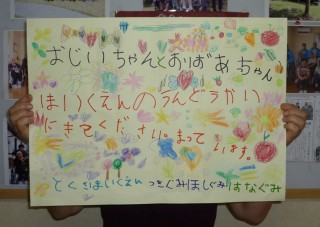 おじいちゃんとおばあちゃん
ほいくえんのうんどうかい
にきてください。まって
います。
とくさほいくえん つきぐみほしぐみ はなぐみ